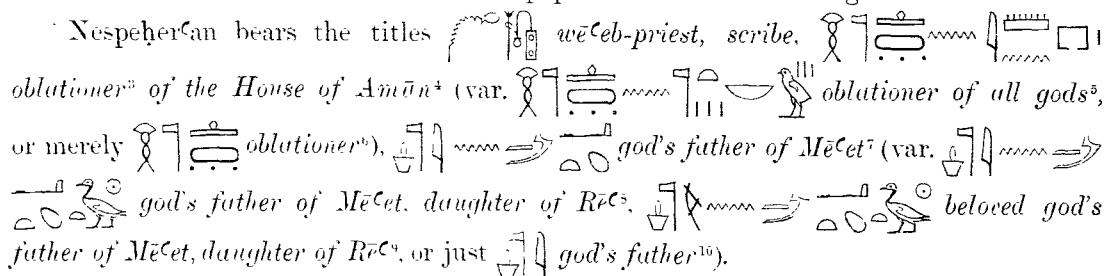 Nespeḥerʿan bears the titles wēʿeb-priest, scribe,
oblationer³ of the House of Amūn⁴ (var. oblationer of all gods⁵,
or merely oblationer⁶), god's father of Mēʿet⁷ (var.
god's father of Mēʿet, daughter of Rēʿ⁸, beloved god's
father of Mēʿet, daughter of Rēʿ⁹, or just god's father¹⁰).